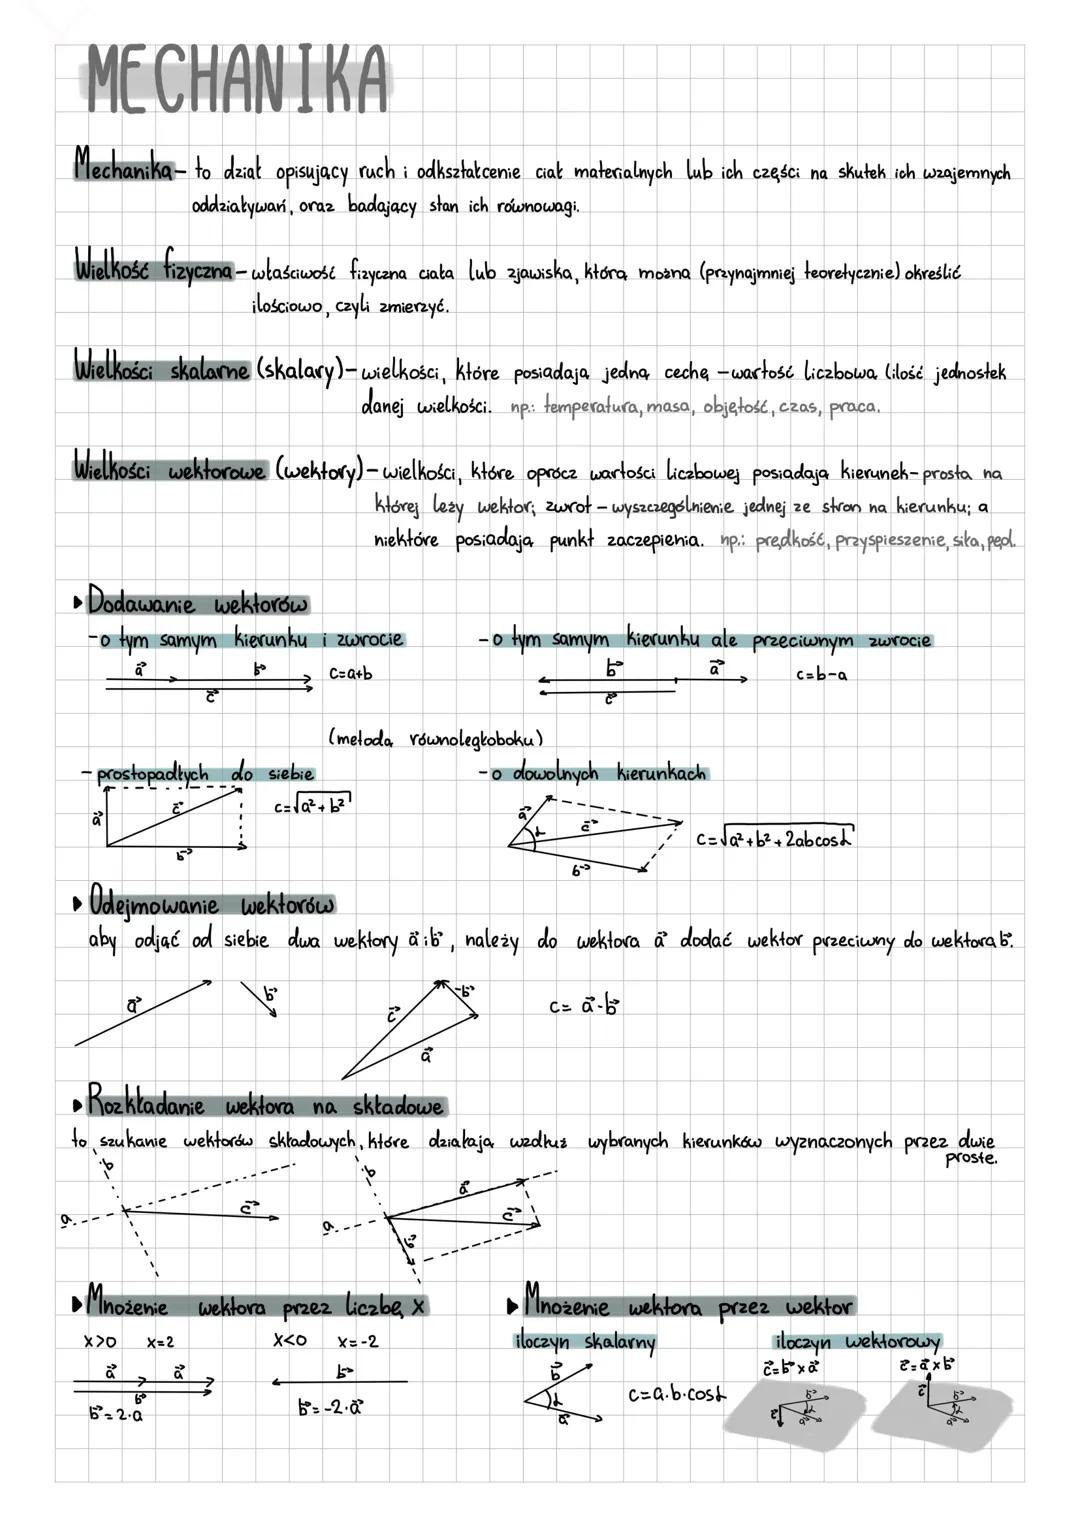 MECHANIKA
Mechanika - to dział opisujący ruch i odkształcenie ciał materialnych lub ich części na skutek ich wzajemnych
oddziaływań, oraz badający stan ich równowagi.
Wielkość fizyczna - właściwość fizyczna ciała lub zjawiska, którą można (przynajmniej teoretycznie) określić
ilościowo, czyli zmierzyć.
Wielkości skalarne (skalary) - wielkości, które posiadają jedną cechę - wartość liczbową (ilość jednostek
danej wielkości. np.: temperatura, masa, objętość, czas, praca.
Wielkości wektorowe (wektory) - wielkości, które oprócz wartości liczbowej posiadają kierunek - prosta na
której leży wektor; zwrot - wyszczególnienie jednej ze stron na kierunku; a
niektóre posiadają punkt zaczepienia. np.: prędkość, przyspieszenie, siła, pęd.
▸Dodawanie wektorów
- o tym samym kierunku i zwrocie
a⃗ b⃗ c=a+b
c⃗
- o tym samym kierunku ale przeciwnym zwrocie
b⃗ a⃗ c=b-a
c⃗
(metoda równoległoboku)
- prostopadłych do siebie
a⃗ c⃗ b⃗ c=√a²+b²
- o dowolnych kierunkach
a⃗ α c⃗ b⃗ c=√a²+b²+2abcosα
▸Odejmowanie wektorów
aby odjąć od siebie dwa wektory a⃗ i b⃗, należy do wektora a⃗ dodać wektor przeciwny do wektora b⃗.
a⃗ b⃗ c⃗ -b⃗ a⃗ c= a⃗-b⃗
▸Rozkładanie wektora na składowe
to szukanie wektorów składowych, które działają wzdłuż wybranych kierunków wyznaczonych przez dwie
proste.
b a c⃗
b a a⃗ c⃗ b⃗
▸Mnożenie wektora przez liczbę x
x>0 x=2 x<0 x=-2
a⃗ a⃗ b⃗
b⃗
b⃗=2·a b⃗=-2·a⃗
▸Mnożenie wektora przez wektor
iloczyn skalarny
b⃗ α a⃗ c=a·b·cosα
iloczyn wektorowy
c⃗=b⃗×a⃗ c⃗=a⃗×b⃗
c⃗ b⃗ α a⃗
c⃗ b⃗ α a⃗